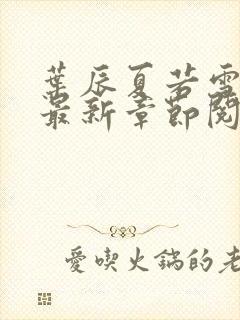 葉辰夏若雪
最新章節閱
愛喫火鍋的老